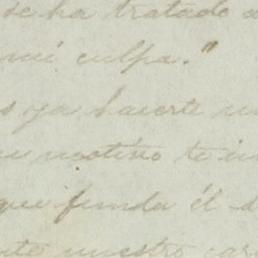 se ha tratado
mi culpa."
ya hacerte
motivo te
que funda él
nuestro